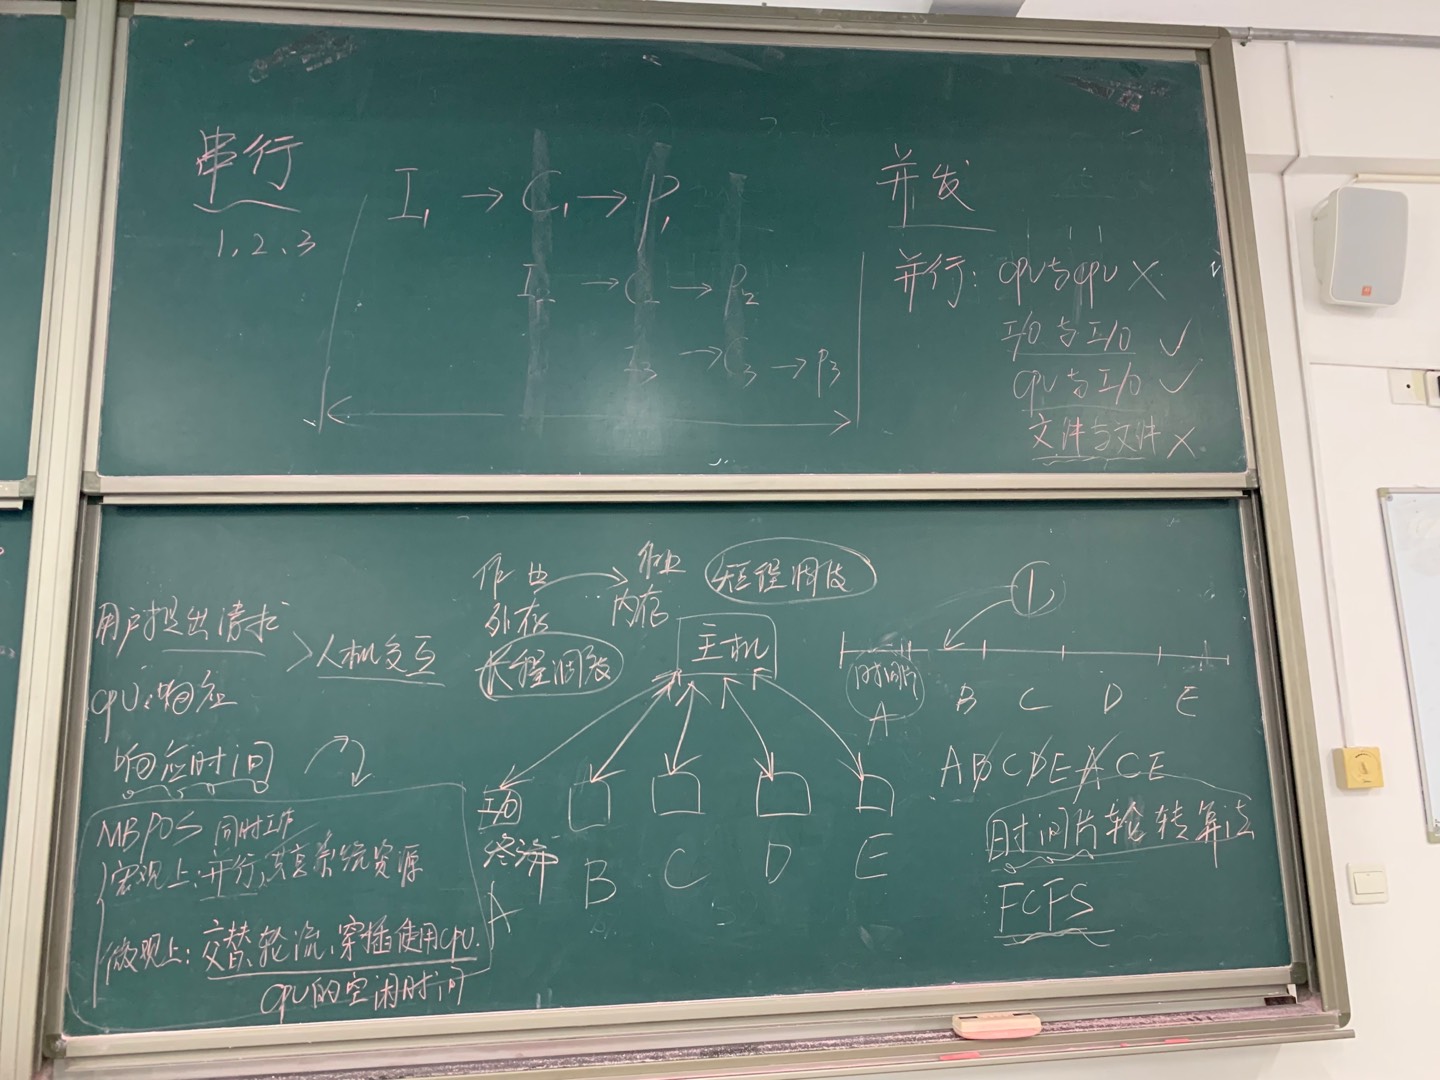 串行
1、2、3
I₁ → C₁ → P₁
I₂ → C₂ → P₂
I₃ → C₃ → P₃
并发
并行: CPU与CPU ×
I/O与I/O ✓
CPU与I/O ✓
文件与文件 ×
用户提出请求
CPU:响应
>人机交互
响应时间
MBPOS 同时工作
宏观上:并行,共享系统资源
微观上:交替、轮流、穿插使用CPU.
CPU的空闲时间
作业 → 作业
外存 内存
短程调度
长程调度
主机
I/O
终端
A B C D E
时间片
A B C D E
ABCDEACE
时间片轮转算法
FCFS